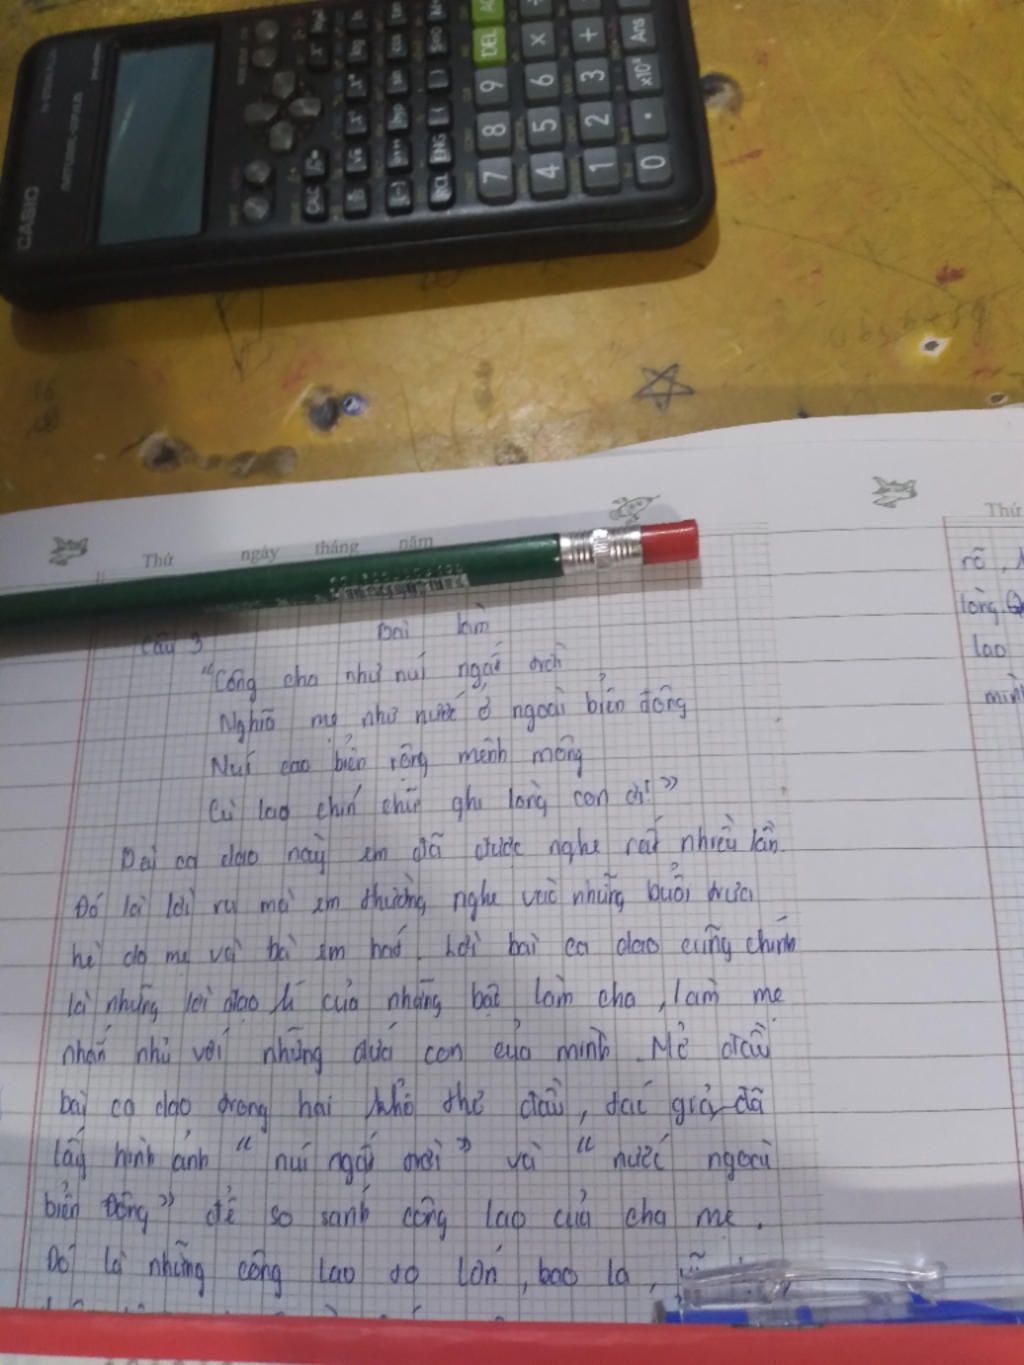 CASIO
DEL
7 8 9
4 5 6 ×
1 2 3 +
0 . ×10ˣ Ans
CALC
RCL ENG ( ) S⇔D M+
Thứ ngày tháng năm
Thứ
Câu 3 Bài làm
"Công cha như núi ngất trời
Nghĩa mẹ như nước ở ngoài biển đông
Núi cao biển rộng mênh mông
Cù lao chín chữ ghi lòng con ơi!"
Bài ca dao này em đã được nghe rất nhiều lần.
Đó là lời ru mà em thường nghe vào những buổi trưa
hè do mẹ và bà em hát. Lời bài ca dao cũng chính
là những lời đạo lí của những bậc làm cha, làm mẹ
nhắn nhủ với những đứa con của mình. Mở đầu
bài ca dao trong hai khổ thơ đầu, tác giả đã
lấy hình ảnh "núi ngất trời" và "nước ngoài
biển Đông" để so sánh công lao của cha mẹ.
Đó là những công lao to lớn, bao la,
rõ,
lòng
lao